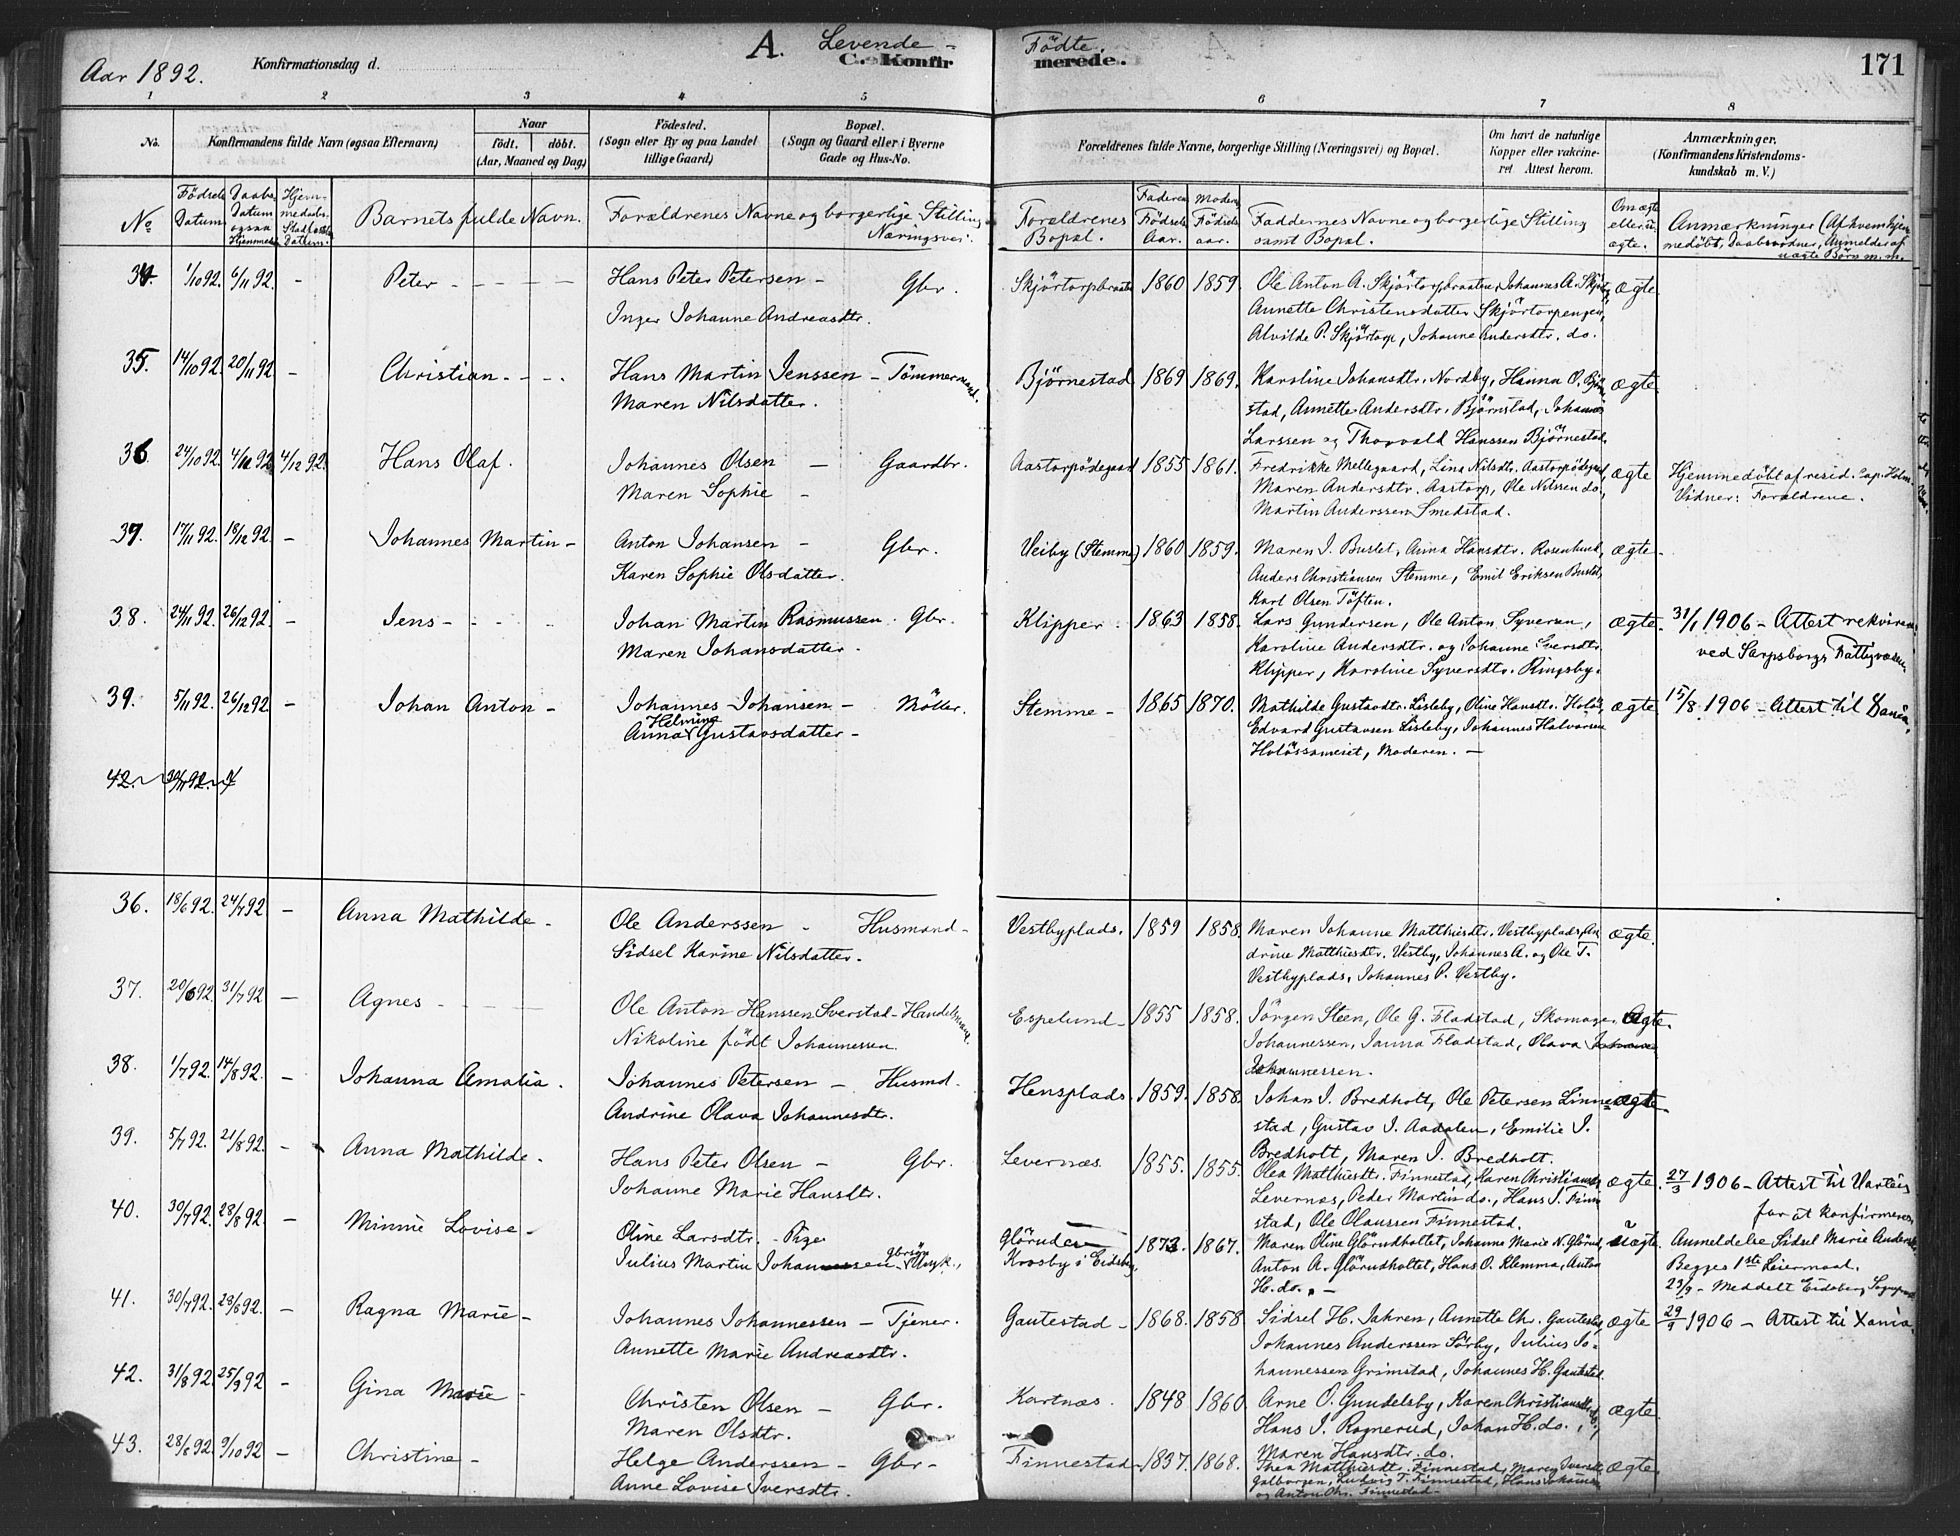 Aar 1892.
Konfirmationsdag d.
A. Levende - Födte.
C. Konfirmerede.
171
1 2 3 4 5 6 7 8
No. Konfirmandens fulde Navn (ogsaa Efternavn) Naar født. døbt. (Aar, Maaned og Dag) Fødested. (Sogn eller By og paa Landet tillige Gaard) Bopæl. (Sogn og Gaard eller i Byerne Gade og Hus-No. Forældrenes fulde Navne, borgerlige Stilling (Næringsvei) og Bopæl. Om havt de naturlige Kopper eller vaccineret Attest herom. Anmærkninger. (Konfirmandens Kristendomskundskab m. V.)
No Fødsels Datum Daabs Datum ogsaa Hjemmed. Hjemmedaabs Datum. Barnets fulde Navn. Forældrenes Navne og borgerlige Stilling Næringsvei. Forældrenes Bopæl. Faderens Fødsels Aar. Moders Fødselsaar. Faddernes Navne og borgerlige Stilling samt Bopæl. Om ægte eller uægte. Anmærkninger (Af hvem hjemmedøbt, Daabsvidner, Anmelder af uægte Børn m. m.
34. 1/10 92. 6/11 92. - Peter - - - - Hans Peter Petersen - Gbr. Skjörtorpbraaten 1860 1859. Ole Anton A. Skjörtorpbraaten, Johannes A. Skjör ægte
Inger Johanne Andreasdtr. Annette Christensdatter Skjörtorpengen,
Alvilde P. Skjørtorp, Johanne Andersdtr. do.
35. 14/10 92. 20/11 92. - Christian. - - - Hans Martin Jenssen - Tömmermand. Bjørnestad 1869 1869. Karoline Johansdtr. Nordby, Hanna O. Bjørn ægte
Maren Nilsdatter. stad, Annette Andersdtr. Bjørnstad, Johannes
Larssen og Thorvald Hanssen Bjørnestad.
36. 24/10 92. 4/12 92. 4/12 92. Hans Olaf. Johannes Olsen - Gaardbr. Aastorpödegaard 1855 1861. Fredrikke Mellegaard, Lina Nilsdtr. Aastorpödegaard, ægte Hjemmedöbt af resid. Cap. Holm.
Maren Sophie - Maren Andersdtr. Aastorp, Ole Nilssen do., Vidner: Forældrene.
Martin Anderssen Smedstad.
37. 17/11 92. 18/12 92. - Johannes Martin - Anton Johansen - Gbr. Veiby (Stemme) 1860 1859. Maren J. Buslet, Anna Hansdtr. Rosenlund, ægte.
Karen Sophie Olsdatter. Anders Christiansen Stemme, Emil Eriksen Buslet,
Karl Olsen Töften.
38. 24/11 92. 26/12 92. - Jens - - - - Johan Martin Rasmussen. Gbr. Klipper. 1863 1858. Lars Gundersen, Ole Anton Syversen, ægte. 31/1 1906 - Attest rekvirer
Maren Johansdatter. Karoline Andersdtr. og Johanne Eversdtr. ved Sarpsborgs Fattigvæsen
Klipper, Karoline Syversdtr. Ringsby.
39. 5/11 92. 26/12 92. - Johan Anton - Johannes Johansen - Möller. Stemme - 1865 1870. Mathilde Gustavsdtr. Lisleby, Oline Hansdtr. ægte 15/8 1906 - Attest til
Anna Helmine Gustavsdatter - Edvard Gustavsen Lisleby, Johannes Halvorsen
Moderen. -
42. 30/11 92.
36. 18/6 92. 24/7 92. - Anna Mathilde - Ole Anderssen - Husmand - Vestbyplads. 1859 1858. Maren Johanne Matthisdtr. Vestbyplads, An ægte.
Sidsel Karine Nilsdatter. drine Matthisdtr. Vestby, Johannes A. og Ole T.
Vestbyplads, Johannes P. Vestby.
37. 20/6 92. 31/7 92 - Agnes - - - - Ole Anton Hanssen Sverstad - Handelsmand. Espelund - 1855 1858. Jörgen Steen, Ole G. Fladstad, Skomager Ægte.
Nikoline født Johannessen. Johannessen, Janna Fladstad, Olava
Johannessen.
38. 1/7 92. 14/8 92. - Johanna Amalia. Johannes Petersen - Husmd. Hensplads. 1859. 1858. Johan J. Bredholt, Ole Petersen Linne ægte
Andrine Olava Johannesdtr. stad, Gustav J. Aadalen, Emilie J.
Bredholt, Maren J. Bredholt.
39. 5/7 92. 21/8 92. - Anna Mathilde - Hans Peter Olsen - Gbr. Levernæs. 1855. 1855. Olea Matthisdtr. Finnestad, Karen Christiansdr ægte. 27/3 1906 - Attest til Varteig
Johanne Marie Hansdtr. Levernæs, Peder Martin do., Hans J. Finne for at konfirmeres
stad, Ole Olaussen Finnestad.
40. 30/7 92. 28/8 92. - Minnie Lovise - Oline Larsdtr. - Pige Glörud 1873. 1867. Maren Oline Glörudholtet, Johanne Marie N. Glörud, uægte. Anmeldelse Sidsel Marie Andersdtr
Julius Martin Johannessen gbrsön Ungk., Krosby i Eidsberg Anton A. Glörudholtet, Hans O. Klemma, Anton Begges 1ste Leiermaal.
H. do. - 23/9 - Meddelt Eidsberg Sognepræst
41. 30/7 92. 28/8 92. - Ragna Marie - Johannes Johannessen - Tjener. Gautestad - 1868. 1858 Sidsel H. Jahren, Annette Chr. Gautestad, ægte 29/9 1906 - Attest til Xania.
Annette Marie Andreasdtr. Johannes Anderssen Sörby, Julius Jo-
hannessen Grimstad, Johannes H. Gautestad.
42. 31/8 92. 25/9 92 - Gina Marie - Christen Olsen - Gbr. Kartnæs. 1848 1860 Arne O. Gundelsby, Karen Christiansdtr. do., ægte.
Maren Olsdtr. Hans J. Rognerud, Johan H. do.,
Maren Hansdtr. do.
43. 28/8 92. 9/10 92 - Christine - Helge Anderssen - Gbr - Finnestad - 1837. 1868. Thea Matthisdtr. Finnestad, Maren Iversdtr. ægte.
Anne Lovise Iversdtr. Ludvig T. Finnestad, Hans Johannes
og Anton Chr. Finnestad -